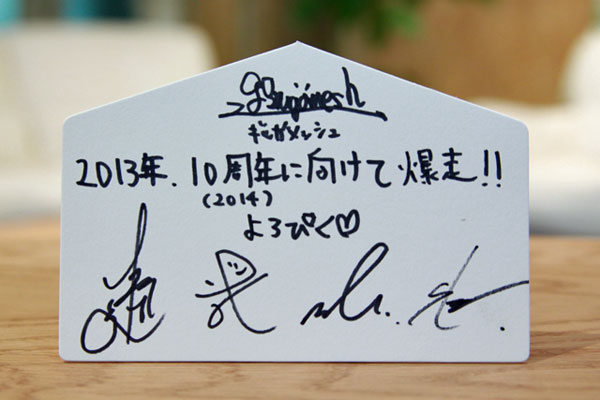 girugamesh
ギルガメッシュ
2013年、10周年に向けて爆走!!
(2014)
よろぴく♡